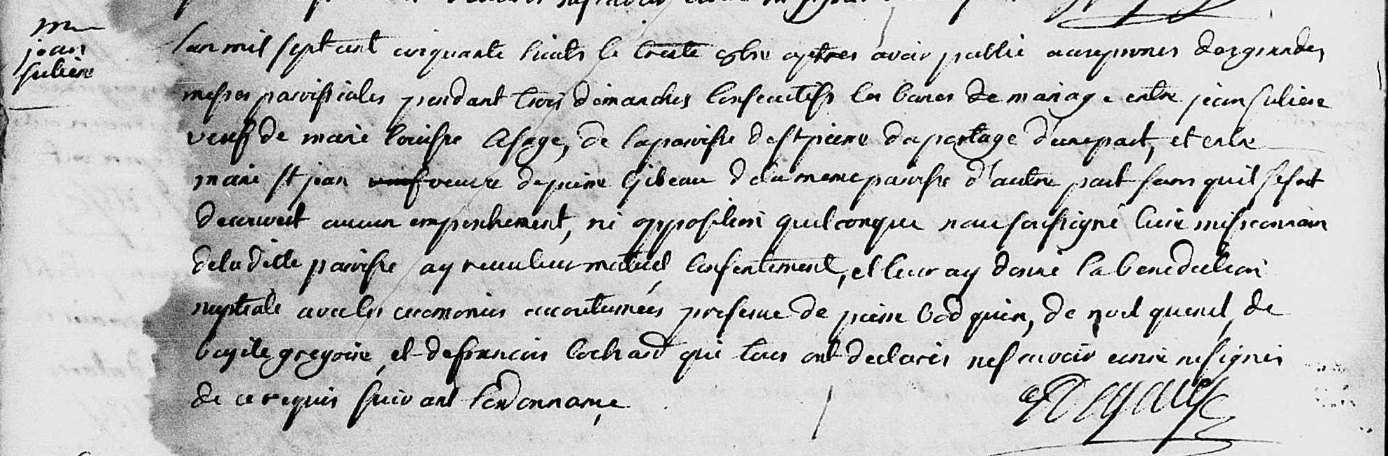 m
jean
suliere
Lan mil sept cent cinquante huit le trente 8bre apres avoir publié aux prones des grandes
messes paroissiales pendant trois dimanches consecutifs les bancs de mariage entre jean suliere
veuf de marie louisse Lesage, de la paroisse de st pierre du portage d'une part, et entre
marie st jean veuve de pierre Gibeau de la meme paroisse d'autre part sans quil se soit
decouvert aucun empechement, ni opposition quelconque nous soussigné curé missionnaire
de la ditte paroisse ay receu leur mutuel consentement, et leur ay donné la benediction
nuptiale avec les ceremonies accoutumées presence de pierre bodquin, de noel quenel, de
bazile gregoire, et de francois cochard qui tous ont declarés ne scavoir ecrire ni signer
de ce requis suivant lordonnance